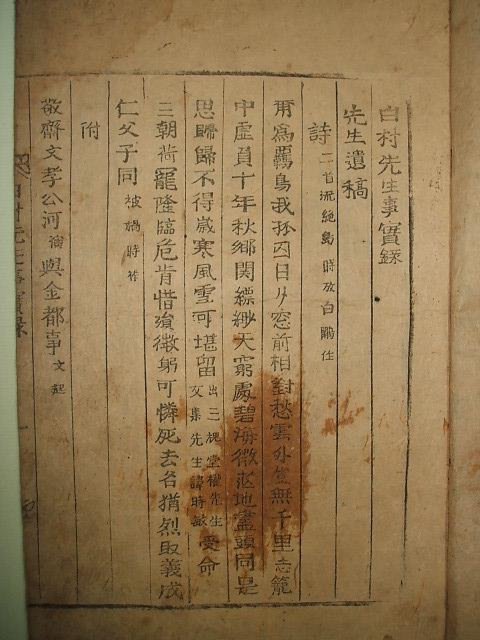 白村先生事實錄
先生遺稿
詩 二首流絶島 時放白鷳作
甭爲羈鳥我孤囚日夕窓前相對愁雲外豈無千里志籠
中虛負十年秋鄕関縹緲天窮處碧海微茫地盡頭同是
思歸歸不得歲寒風雪可堪留 出三槐堂權先生文集先生諱時敏 受命
三朝荷寵隆臨危肯惜殞微躬可憐死去名猶烈取義成
仁父子同 被禍時作
附
敬齋文孝公河演與金都事文起
白村先生事實錄